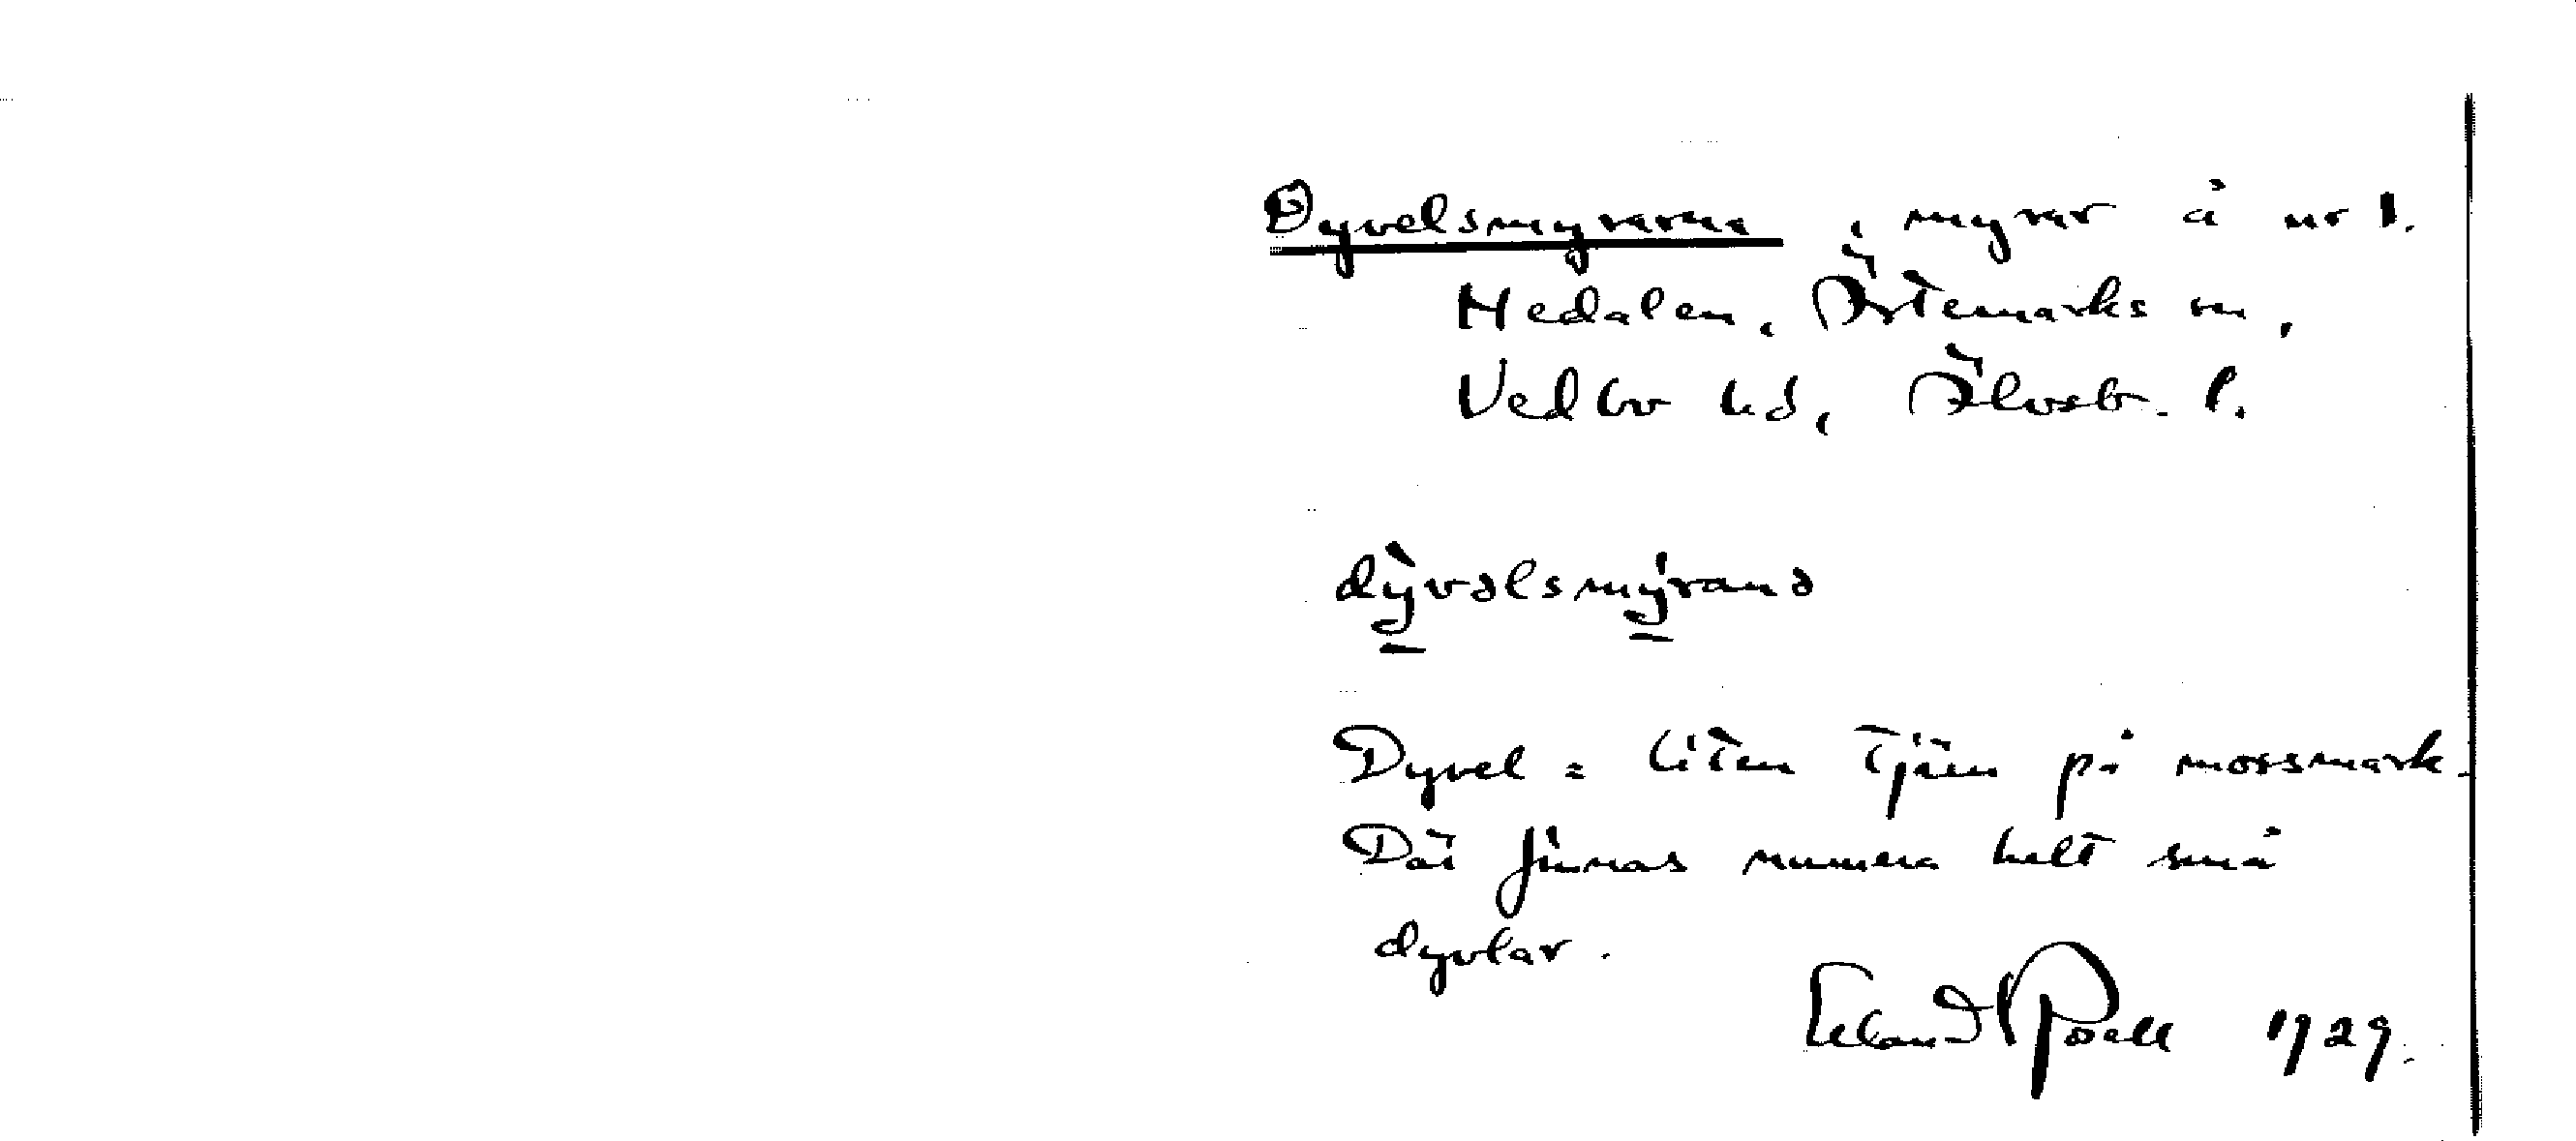 Dyvelsmyrarna, myrar å nr 1.
Hedalen, Ärtemarks sn,
Vedbo hd, Älvsb. l.
dỳvəlsmýranə
Dyvel = liten tjärn på mossmark.
Där finnas numera helt små
dyvlar.
Erland Rosell 1929.